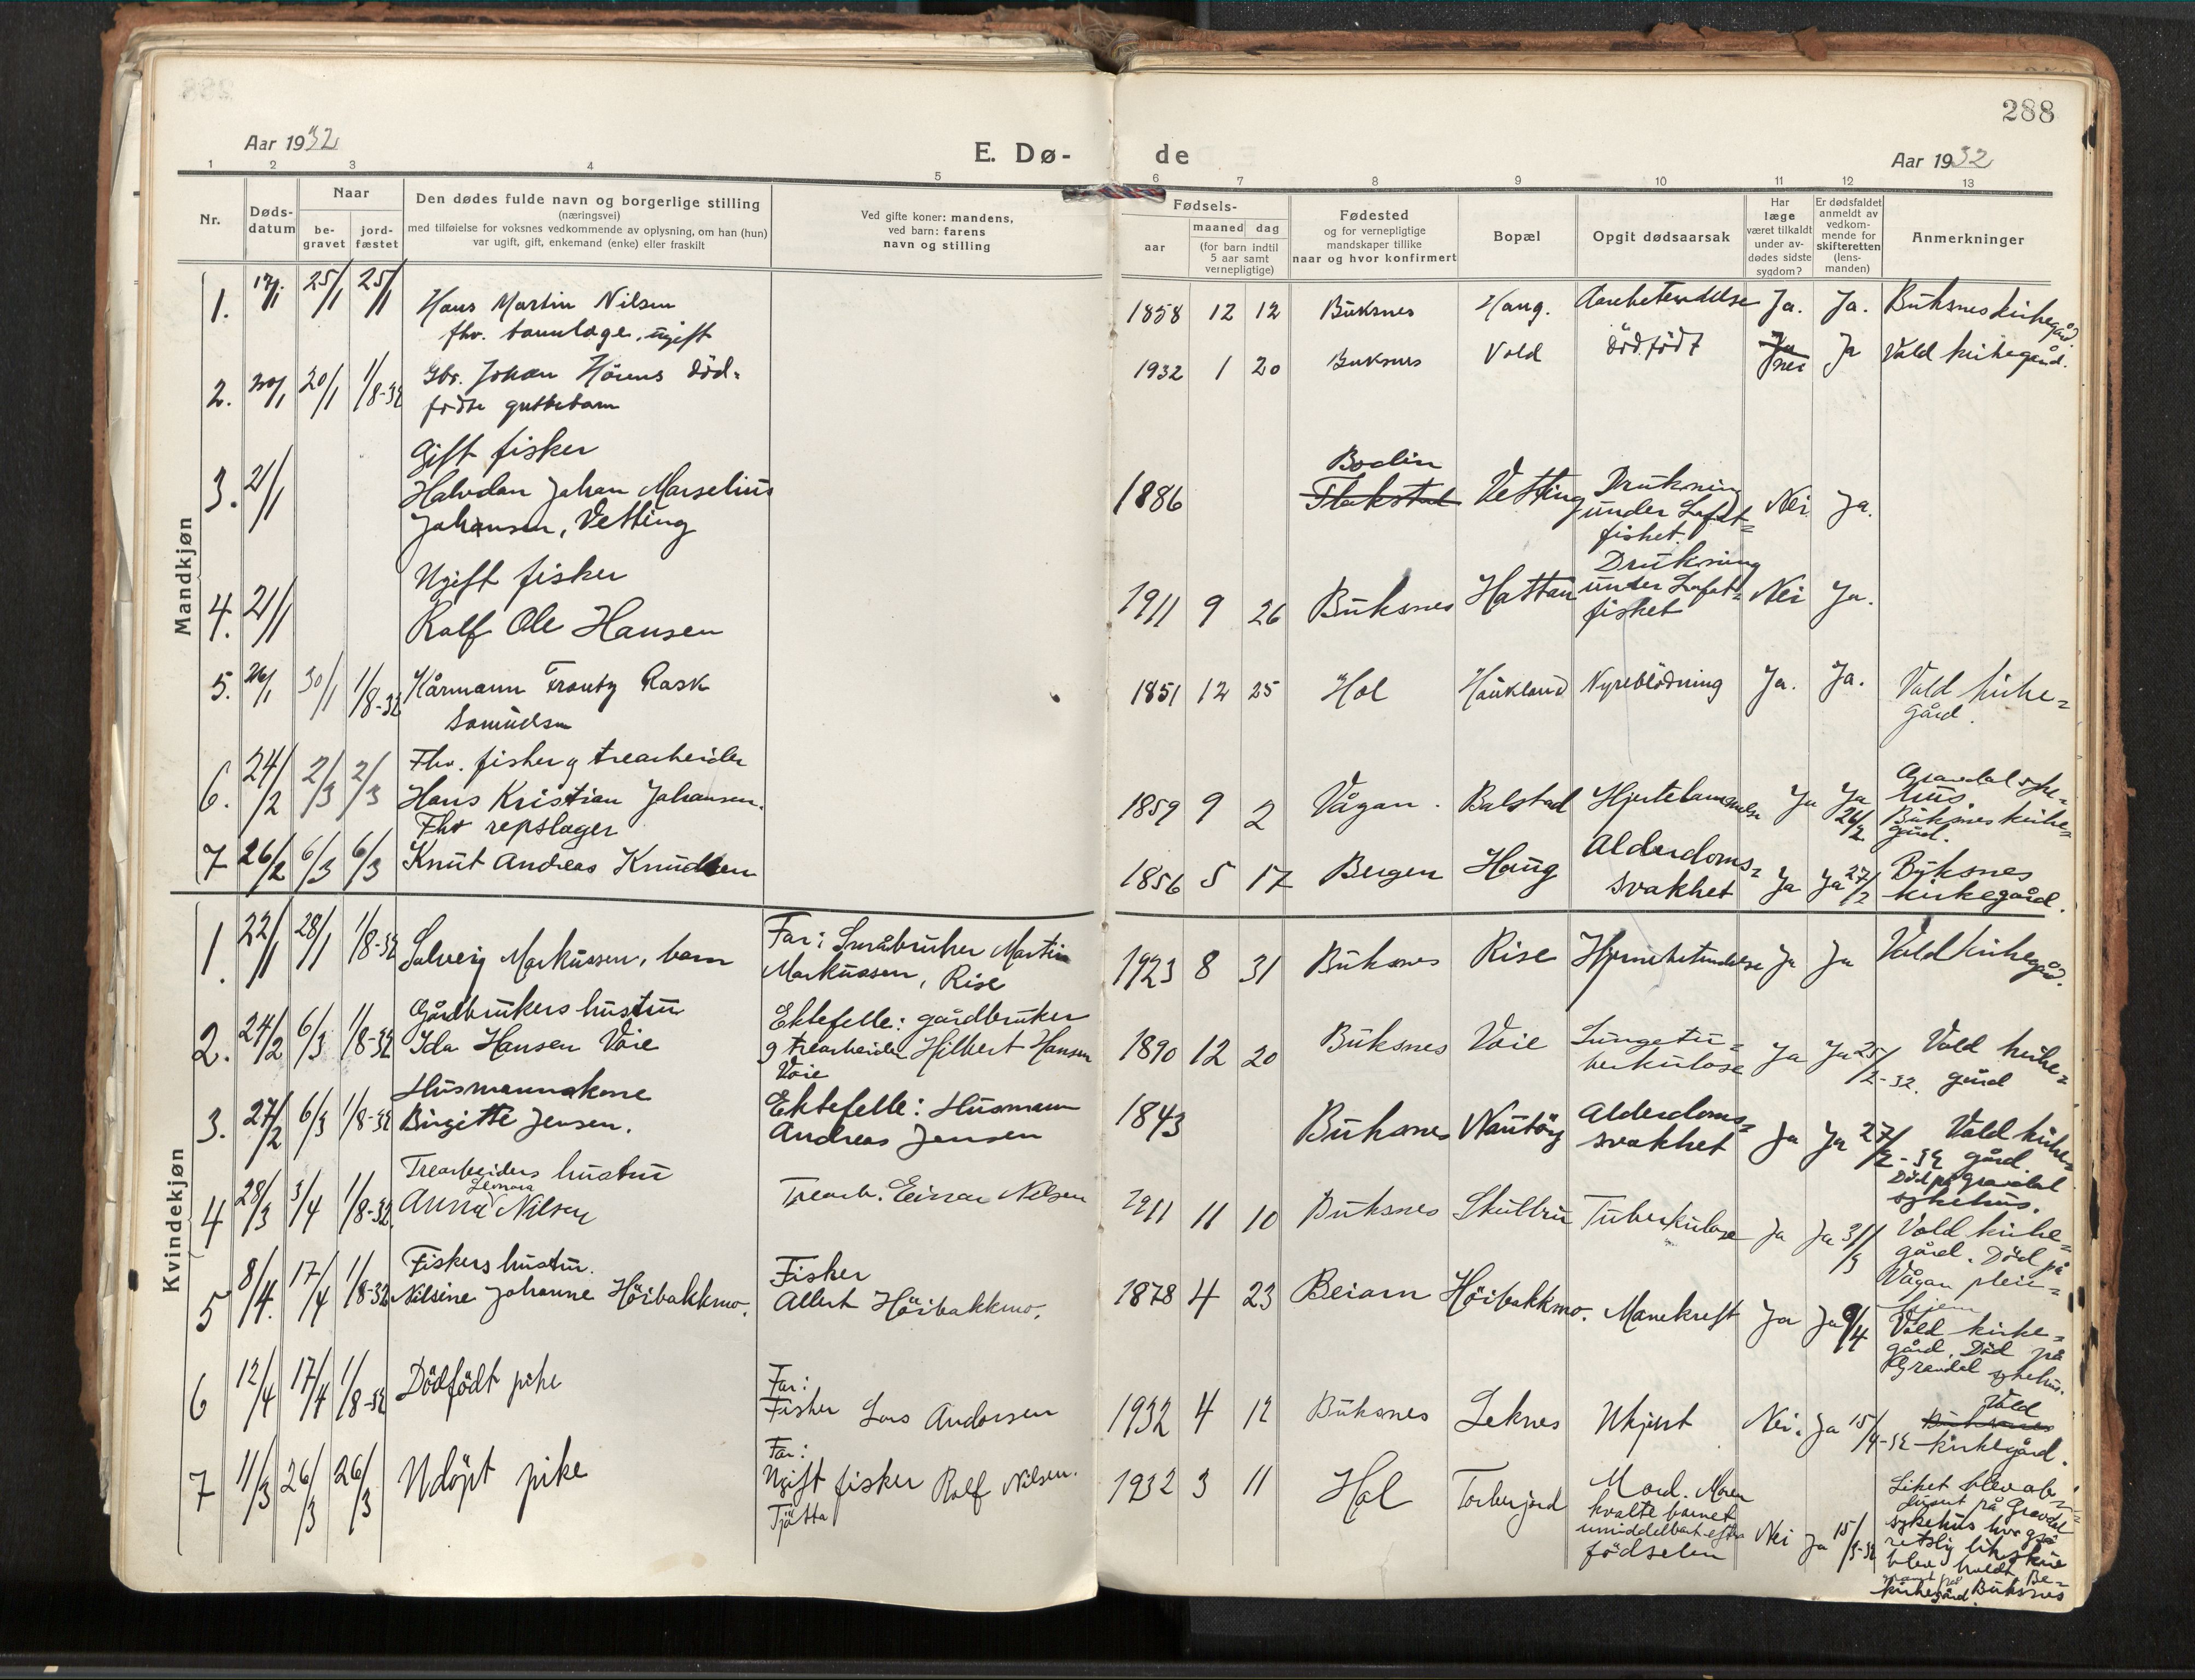 288
Aar 1932
E. Dø-
de
Aar 1932
1 2 3 4 5 6 7 8 9 10 11 12 13
Nr.
Døds-
datum
Naar
be-
gravet
jord-
fæstet
Den dødes fulde navn og borgerlige stilling
(næringsvei)
med tilføielse for voksnes vedkommende av oplysning, om han (hun)
var ugift, gift, enkemand (enke) eller fraskilt
Ved gifte koner: mandens,
ved barn: farens
navn og stilling
Fødsels-
aar
maaned dag
(for barn indtil
5 aar samt
vernepligtige)
Fødested
og for vernepligtige
mandskaper tillike
naar og hvor konfirmert
Bopæl
Opgit dødsaarsak
Har
læge
været tilkaldt
under av-
dødes sidste
sygdom?
Er dødsfaldet
anmeldt av
vedkom-
mende for
skifteretten
(lens-
manden)
Anmerkninger
Mandkjøn
1. 17/1 25/1 25/1
Hans Martin Nilsen
fhv. , ugift
1858 12 12 Buksnes Haug. Ja. Ja. Buksnes kirkegård.
2. 20/1 20/1 1/8-32
Gbr. Johan död-
födte guttebarn
1932 1 20 Buksnes Vold Dödfödt Ja nei Ja Vold kirkegård.
3. 21/1
Gift fisker
Halvdan Johan Marselius
Johansen, Vetting
1886 Bodin Flakstad Vetting Drukning
under Lofot-
fisket. Nei Ja.
4. 21/1
Ugift fisker
Rolf Ole Hansen
1911 9 26 Buksnes Hattan Drukning
under Lofot-
fisket Nei Ja.
5. 30/1 1/8-32
Kårmann Frantz Rask
Samuelsen
1851 12 25 Hol Haukland Nyreblödning Ja. Ja. Vold kirke-
gård.
6. 24/2 2/3 2/3
Fhv. fisker og trearbeider
Hans Kristian Johansen.
1859 9 2 Vågan. Balstad Hjertelammelse Ja Ja 26/2 Gravdal syke-
hus.
Buksnes kirke-
gård.
7 26/2 6/3 6/3
Fhv repslager
Knut Andreas Knudsen
1856 5 17 Bergen Haug Alderdoms-
svakhet Ja Ja 27/2 Buksnes
kirkegård.
Kvindekjøn
1. 22/1 28/1 1/8-32
Solveig Markussen, barn
Far: Småbruker Martin
Markussen, Rise
1923 8 31 Buksnes Rise Hjernebetendelse Ja Ja Vold kirkegård.
2. 24/2 6/3 1/8-32
Gårdbrukers hustru
Ida Hansen Voie
Ektefelle: gårdbruker
og trearbeider Hilbert Hansen
Voie
1890 12 20 Buksnes Voie Lungetu-
berkulose Ja Ja 25/2-32. Vold kirke-
gård
3. 27/2 6/3 1/8-32
Husmannskone
Birgitte Jensen.
Ektefelle: Husmann
Andreas Jensen
1843 Buksnes Nautöy Alderdoms-
svakhet Ja Ja 27/2-32 Vold kirke-
gård.
Död på Gravdal
sykehus.
4 28/3 3/4 1/8-32
Trearbeiders hustru
Leonora
Anna Nilsen
Trearb. Einar Nilsen
1911 11 10 Buksnes Skulbru Tuberkulose Ja Ja 31/3 Vold kirke-
gård. Död på
Vågan pleie-
hjem
5 8/4. 17/4 1/8-32
Fiskers hustru.
Nilsine Johanne Höibakkmo.
Fisker
Albert Höibakkmo.
1878 4 23 Beiarn Höibakkmo. Mavekreft Ja Ja 9/4 Vold kirke-
gård. Död på
Gravdal sykehus.
6 12/4 17/4 1/8-32
Dödfödt pike
Far:
Fisker Lars Andorsen
1932 4 12 Buksnes Leknes Ukjent Nei. Ja 15/4-32 Vold
Buksnes
kirkegård.
7 11/3 26/3 26/3
Udöpt pike
Far:
Ugift fisker Rolf Nilsen.
Tjötta
1932 3 11 Hol Torbersjord Mord. Moren
kvalte barnet
umiddelbart efter
födselen Nei Ja 15/3-32 Liket blev ob-
dusert på Gravdal
sykehus hvor også
retslig likskue
blev holdt. Be-
gravet på Buksnes
kirkegård.